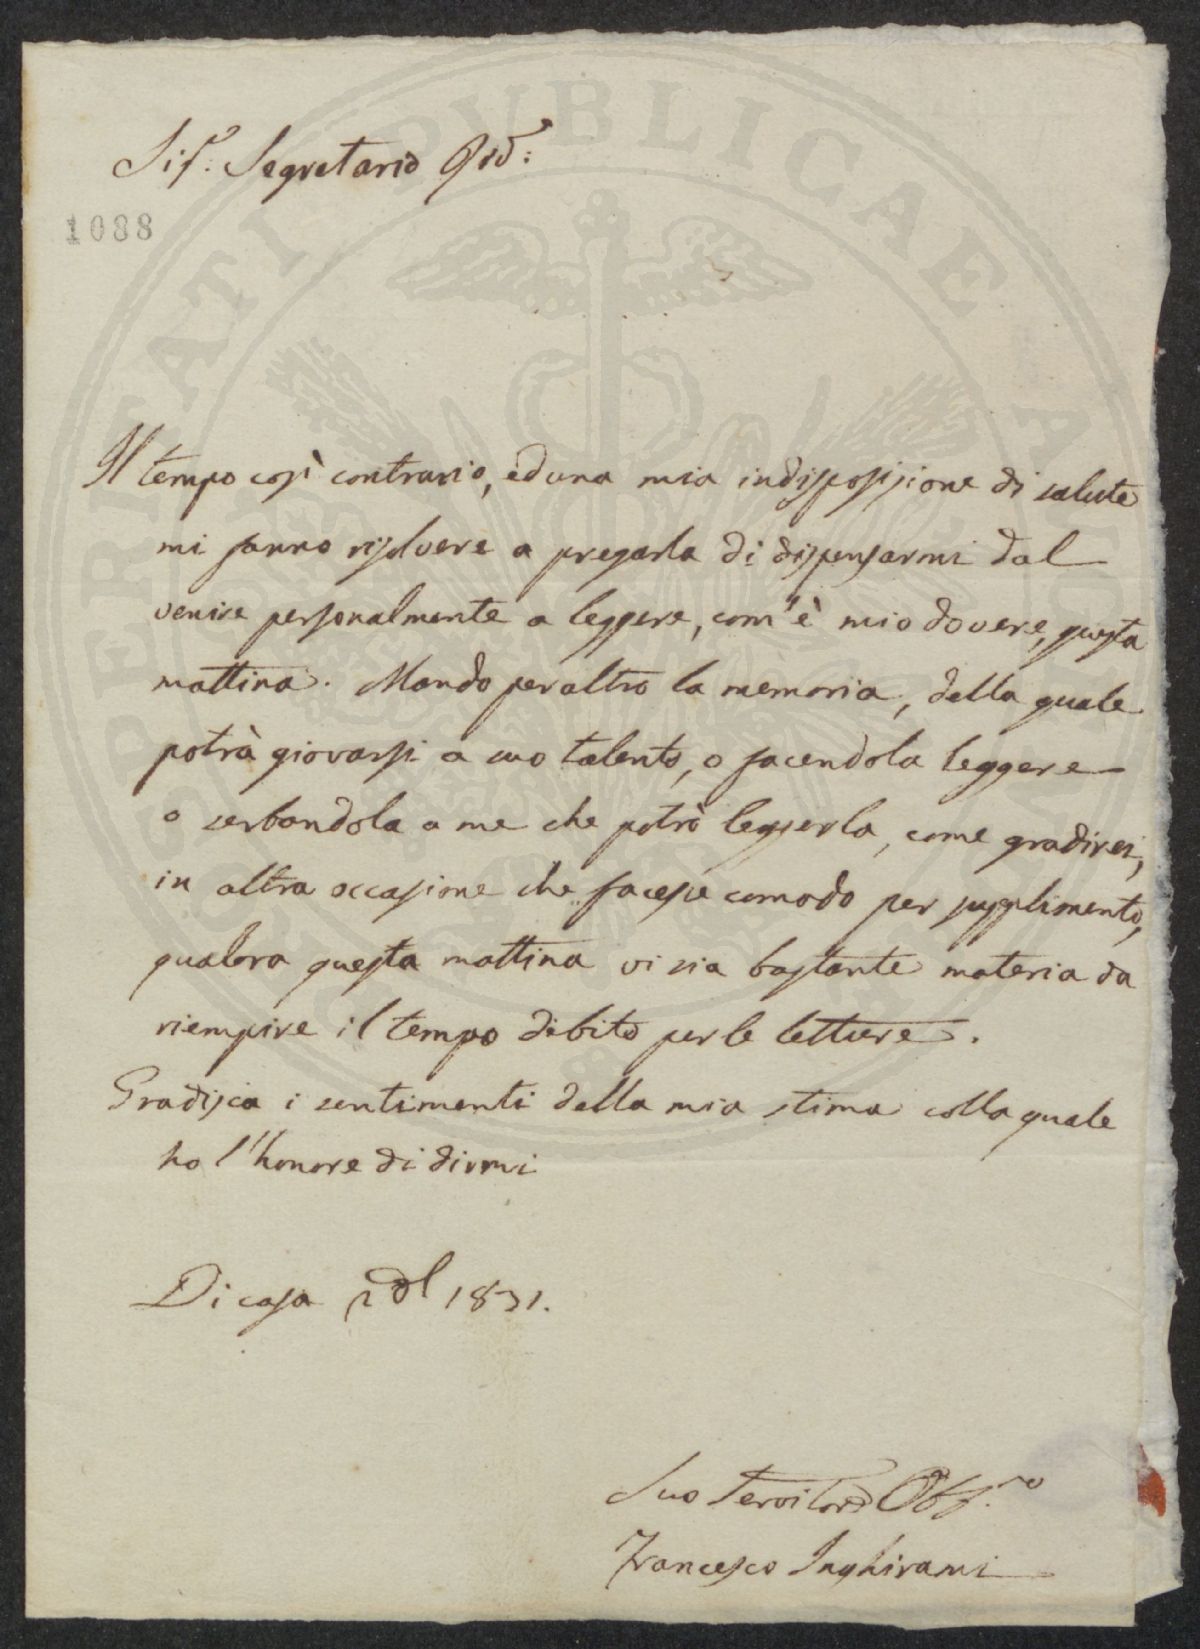 Sig.<sup>e</sup> Segretario
1088
Il tempo così contrario, ed una mia indisposizione di salute
mi fanno risolvere a pregarla di dispensarmi dal
venire personalmente a leggere, com'è mio dovere, questa
mattina. Mando per altro la memoria, della quale
potrà giovarsi a suo talento, o facendola leggere
o serbandola a me che potrò leggerla, come gradirei,
in altra occasione che facesse comodo per supplimento,
qualora questa mattina vi sia bastante materia da
riempire il tempo debito per le letture.
Gradisca i sentimenti della mia stima colla quale
ho l'honore di dirmi
Di casa 1831.
Suo Servitore
Francesco Inghirami